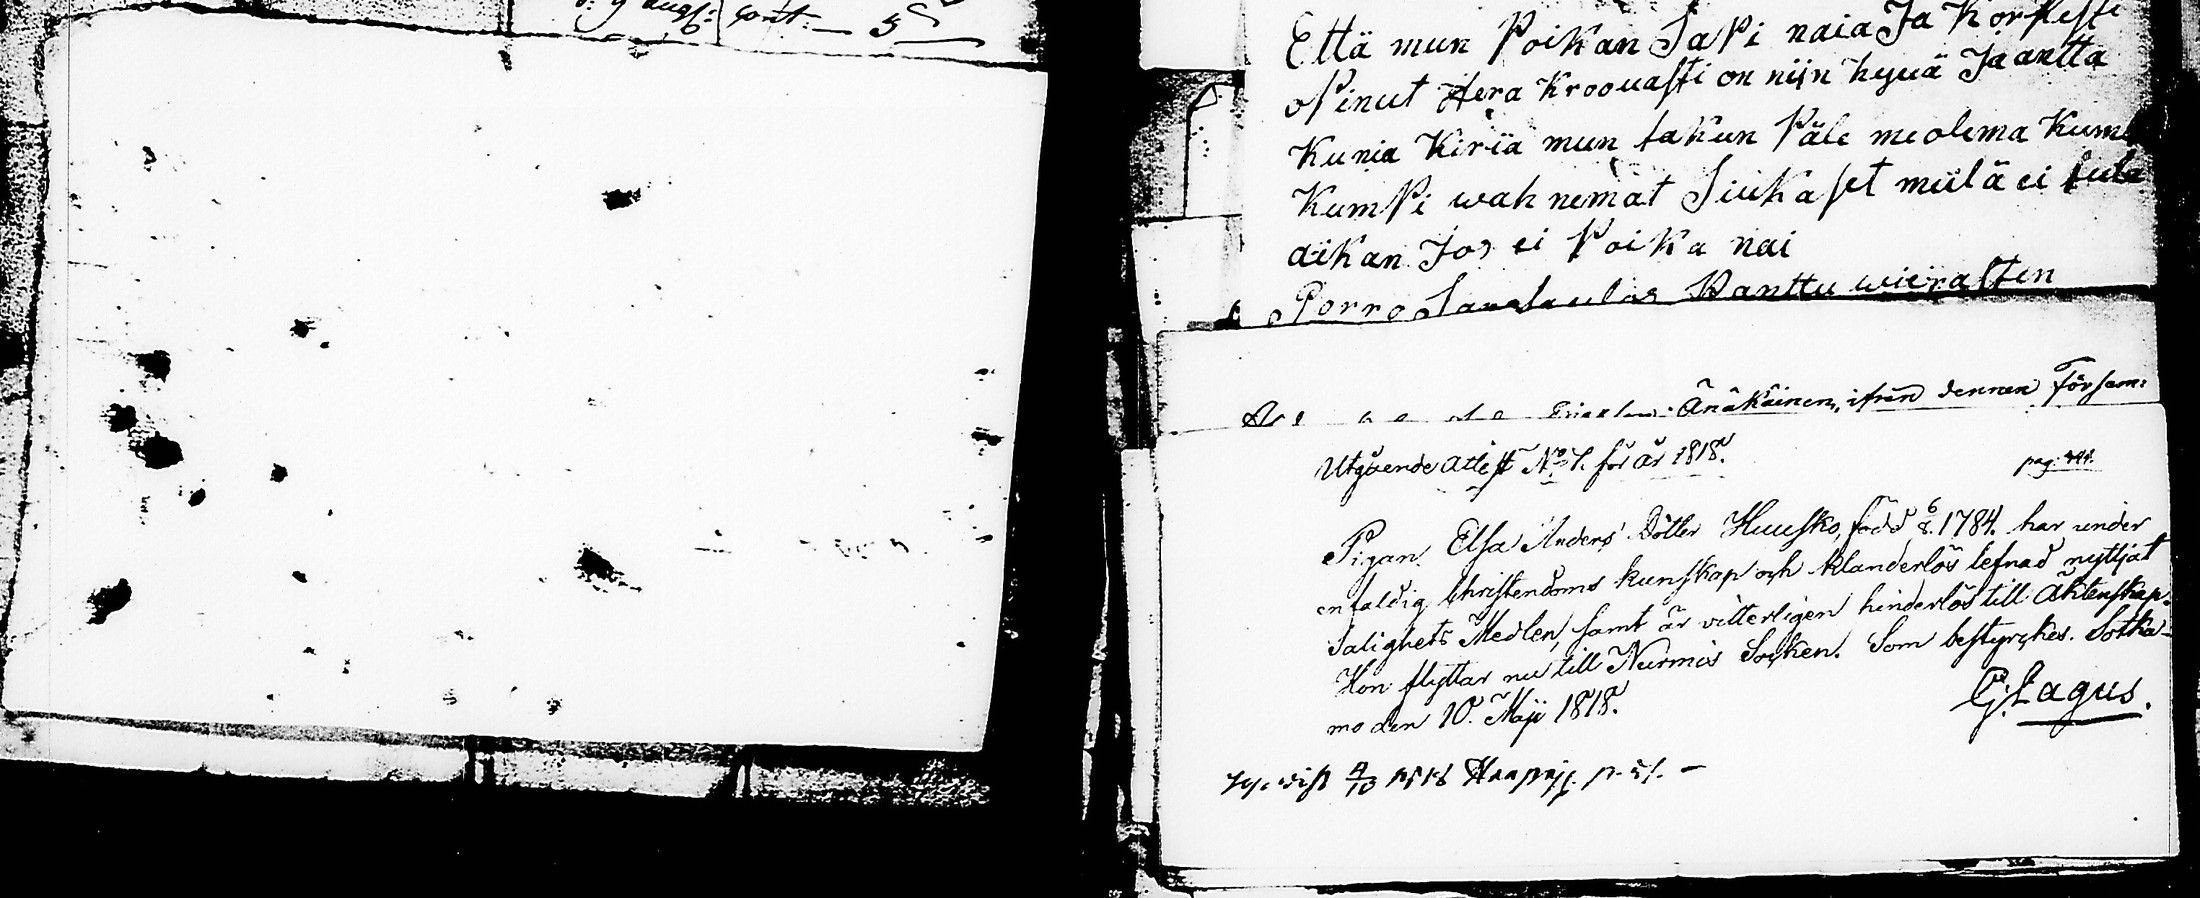 Että mun Poikan Sapi naia Ja Korkesti
opinut Hera Kroouasti on niin hyuä Ja antta
Kunia Kiriä mun takun Päle me olema
Kumpi wah nemat Siukaset miilä ei tule
aikan Jos ei Poika nai
Porro wierasten
Änäkäinen, ifrån dennen Försam:
Utgående Attest No 7. för år 1818.
pag.
Pigan Elsa Anders Dotter Huusko, född 6/8 1784. har under
enfaldig Christendoms kunskap och klanderlös lefnad nyttjat
Salighets Medlen, samt är vitterligen hinderlös till Äktenskap.
Hon flyttar nu till Nurmis Socken. Som bestyrckes. Sotka-
mo den 10. Maji 1818.
G. Lagus.
p. 51. —